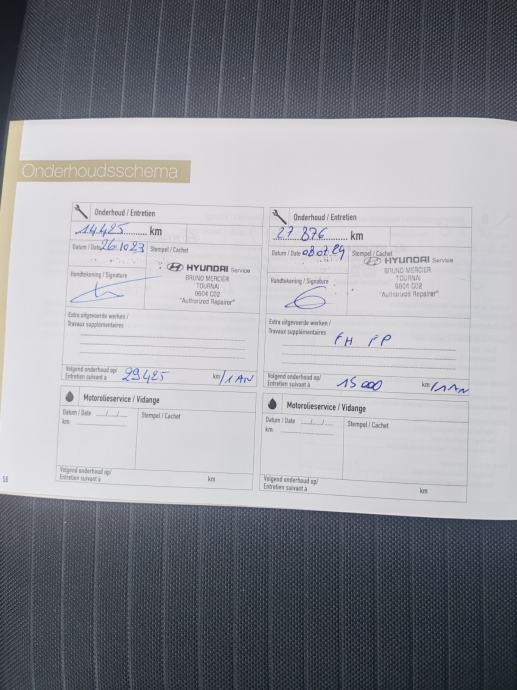 Onderhoudsschema
Onderhoud / Entretien
14425 km
Datum / Date 26 10 23 Stempel / Cachet
HYUNDAI Service
BRUNO MERCIER
TOURNAI
9604 C02
"Authorized Repairer"
Handtekening / Signature
Extra uitgevoerde werken /
Travaux supplémentaires
Volgend onderhoud op/
Entretien suivant à 29425 km /1 AN
Motorolieservice / Vidange
Datum / Date __/__/__ Stempel / Cachet
km:
Volgend onderhoud op/
Entretien suivant à km
Onderhoud / Entretien
27 876 km
Datum / Date 08 07 24 Stempel / Cachet
HYUNDAI Service
BRUNO MERCIER
TOURNAI
9604 C02
"Authorized Repairer"
Handtekening / Signature
Extra uitgevoerde werken /
Travaux supplémentaires FH FP
Volgend onderhoud op/
Entretien suivant à 15 000 km /1 AN
Motorolieservice / Vidange
Datum / Date __/__/__ Stempel / Cachet
km:
Volgend onderhoud op/
Entretien suivant à km
58